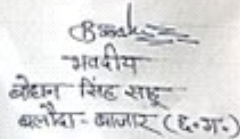 भवदीय
बोधन सिंह साहू
बलौदा-बाजार (छ.ग.)